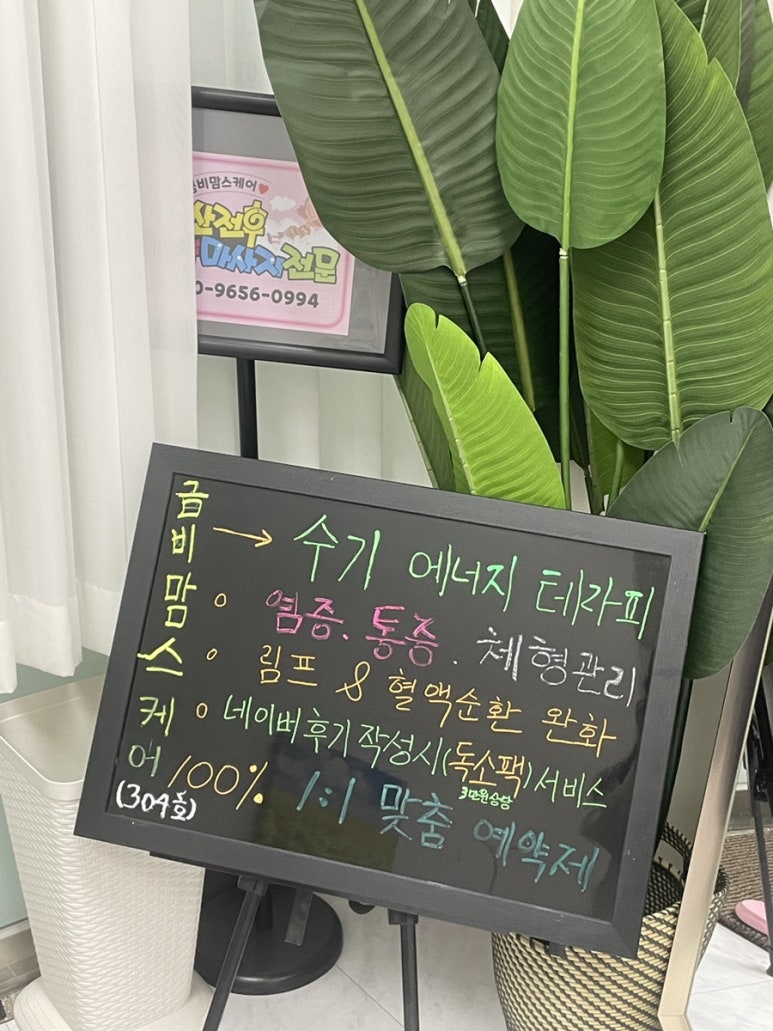 비맘스케어
산전후
마사지전문
0-9656-0994
금비맘스케어
(304호)
→ 수기 에너지 테라피
○ 염증. 통증. 체형관리
○ 림프 & 혈액순환 완화
○ 네이버 후기 작성시(독소팩)서비스
3만원상당
100% 1:1 맞춤 예약제